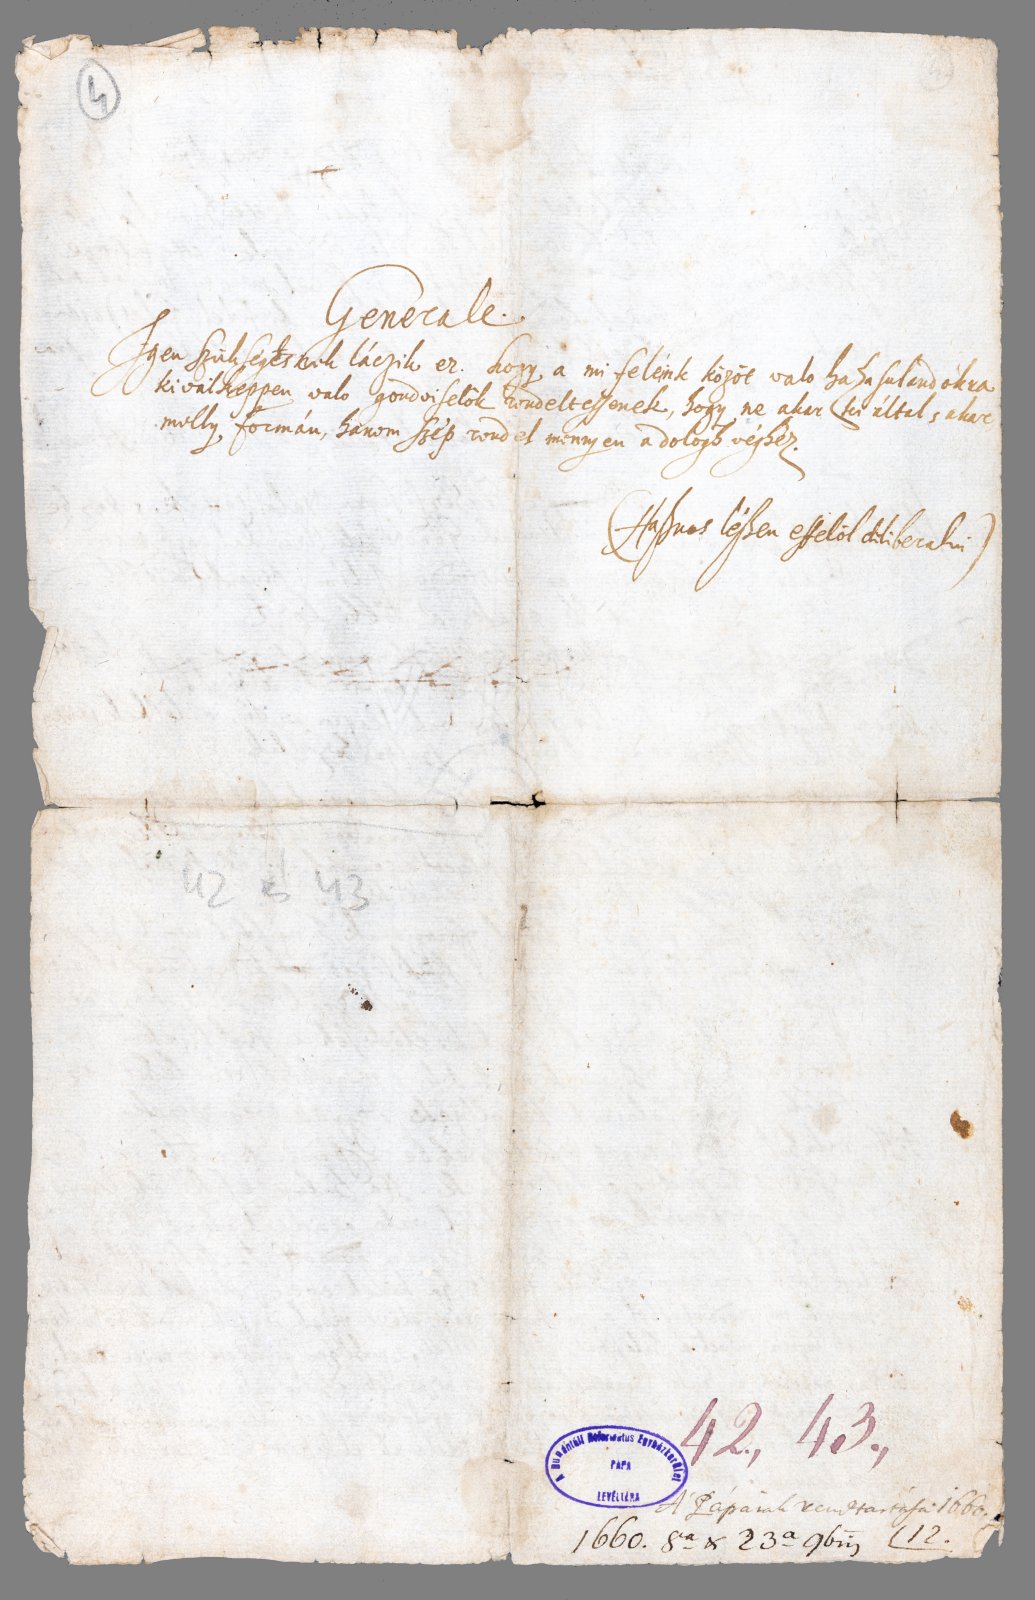 4
Generale.
Igen szüksegesnek láczik ez. hogy a mi feleink közöt valo hazasulandókra
kiválkeppen valo gondviselök rendeltessenek, hogy ne akar ki által, s akar
melly formán, hanem szép rendel mennyen a dologh véghez.
(Hasznos lészen effelöl deliberalni)
42 és 43
42., 43.,
A Dunántúli Református Egyházkerület
PÁPA
LEVÉLTÁRA
A' Pápának rendtartásai 1660.
1660. 8a & 23a 9bris (12.